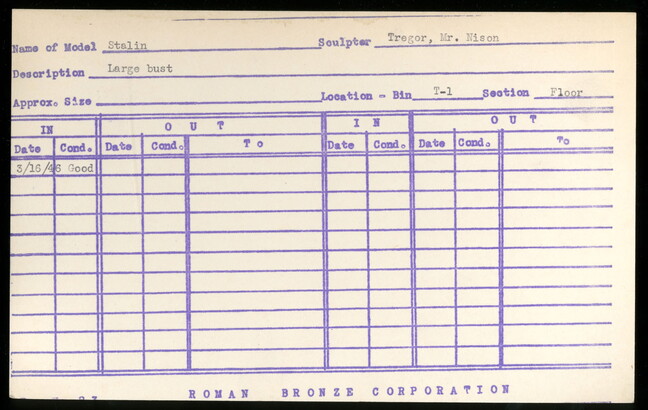 Name of Model Stalin Sculptor Tregor, Mr. Nison
Description Large bust
Approx. Size Location - Bin T-1 Section Floor
IN OUT IN OUT
Date Cond. Date Cond. To Date Cond. Date Cond. To
3/16/46 Good
ROMAN BRONZE CORPORATION